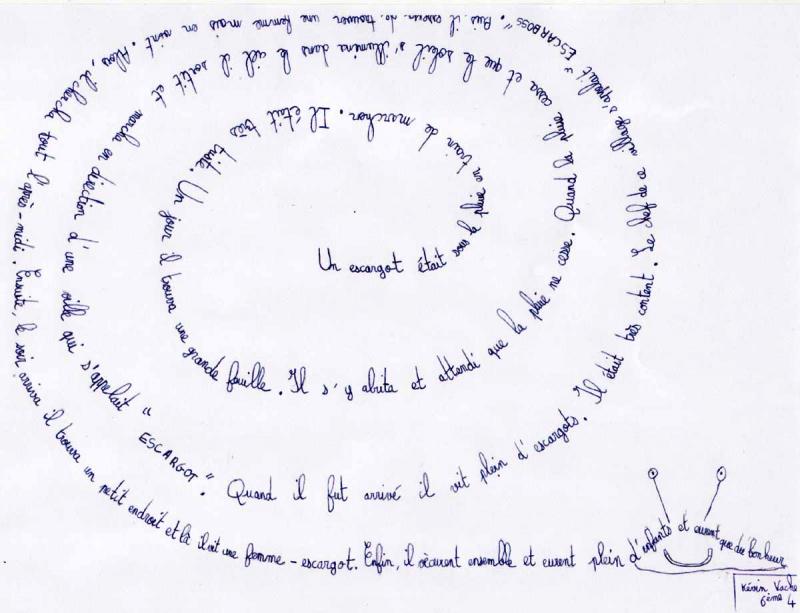 Un escargot était sous la pluie en train de marcher. Il était très triste. Un jour il trouva une grande feuille. Il s'y abrita et attendi que la pluie ne cesse. Quand la pluie cessa et que le soleil s'illumina dans le ciel il sortit et marcha en direction d'une ville qui s'appelait "ESCARGOT". Quand il fut arrivé il vit plein d'escargots. Il était très content. Le chef de ce village s'appelait "ESCARBOSS". Puis il essaya de trouver une femme mais en vint. Alors, il chercha tout l'après-midi. Ensuite, le soir arriva il trouva un petit endroit et là il vit une femme-escargot. Enfin, il vécurent ensemble et eurent plein d'enfants et eurent que du bonheur
Kévin Vache
6ème 4